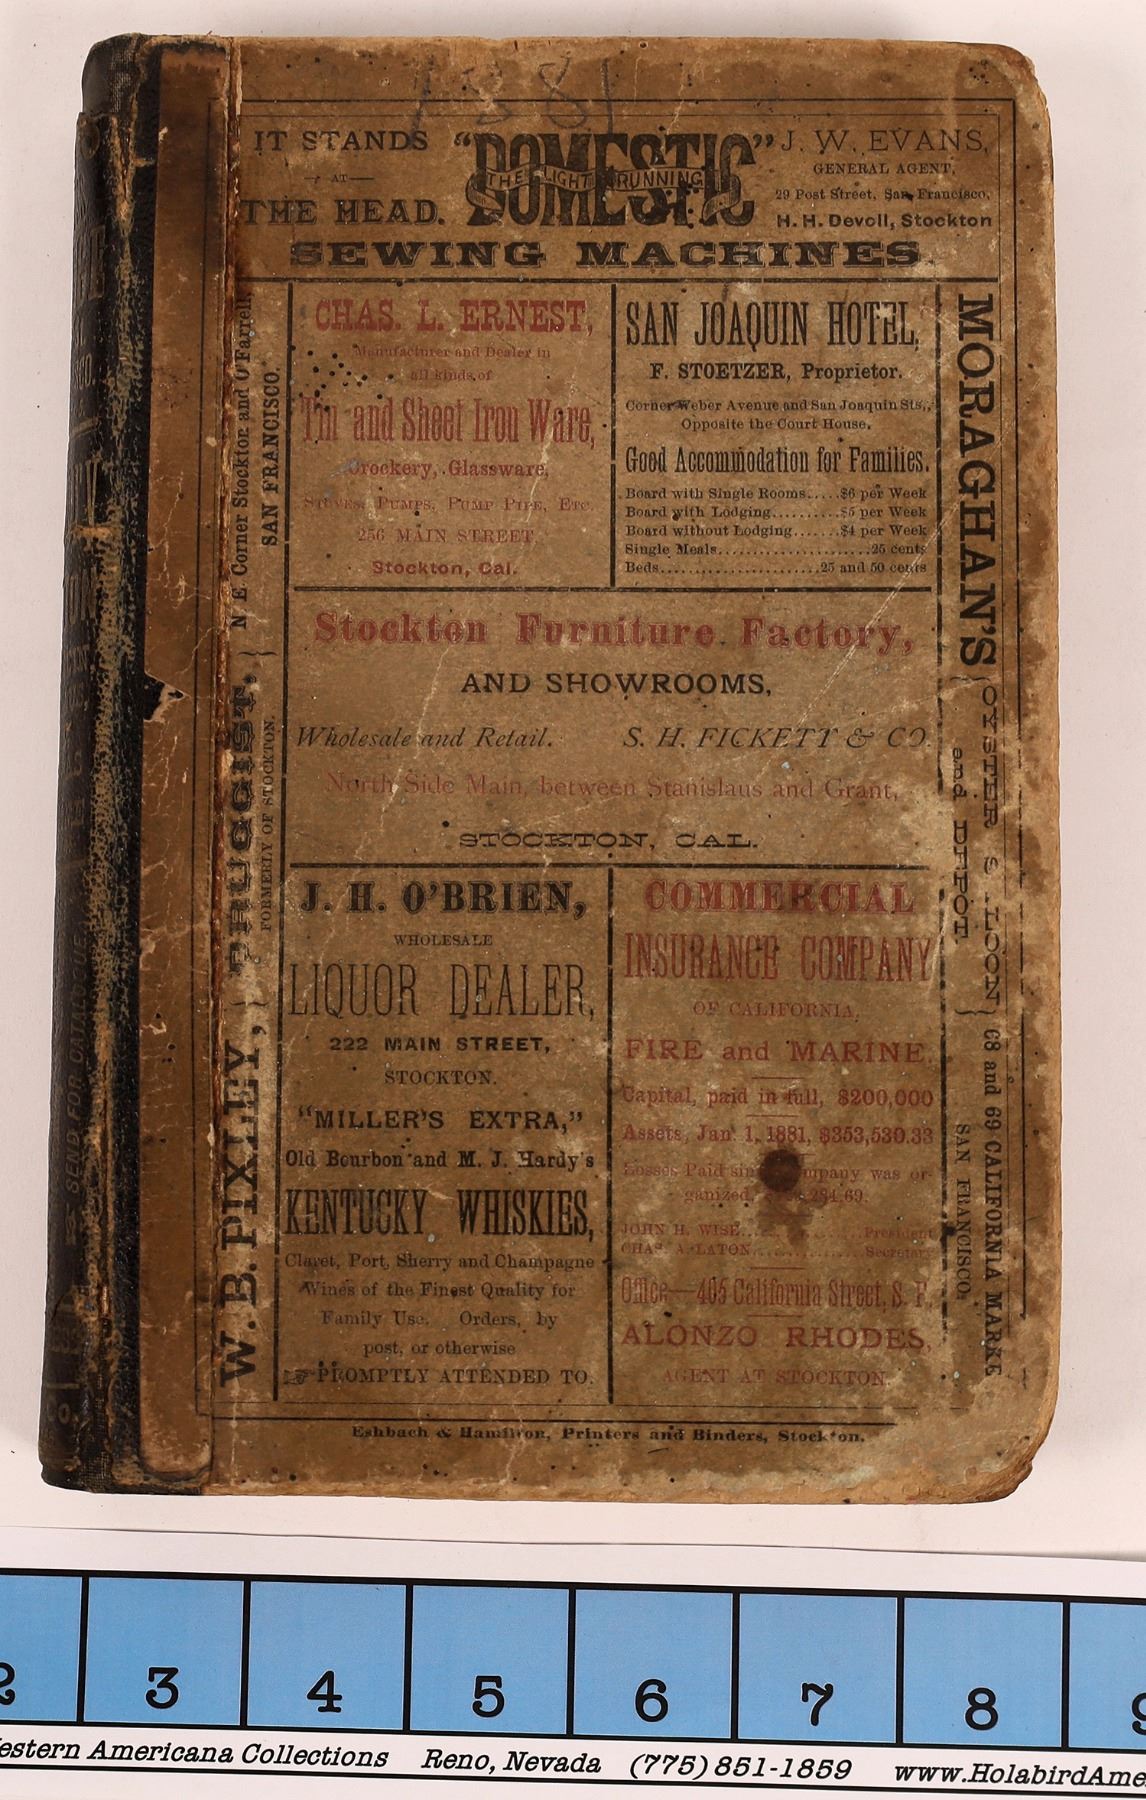 1881
IT STANDS
AT
THE HEAD.
"DOMESTIC"
THE LIGHT RUNNING
SEWING MACHINES.
J. W. EVANS,
GENERAL AGENT,
29 Post Street, San Francisco,
H. H. Devoll, Stockton
CHAS. L. ERNEST,
Manufacturer and Dealer in
all kinds of
Tin and Sheet Iron Ware,
Crockery, Glassware,
Stoves, Pumps, Pump Pipe, Etc.
256 MAIN STREET,
Stockton, Cal.
SAN JOAQUIN HOTEL,
F. STOETZER, Proprietor.
Corner Weber Avenue and San Joaquin Sts.,
Opposite the Court House.
Good Accommodation for Families.
Board with Single Rooms.....$6 per Week
Board with Lodging..........$5 per Week
Board without Lodging.......$4 per Week
Single Meals......................25 cents
Beds.......................25 and 50 cents
Stockton Furniture Factory,
AND SHOWROOMS,
Wholesale and Retail. S. H. FICKETT & CO.
North Side Main, between Stanislaus and Grant,
STOCKTON, CAL.
J. H. O'BRIEN,
WHOLESALE
LIQUOR DEALER,
222 MAIN STREET,
STOCKTON.
"MILLER'S EXTRA,"
Old Bourbon and M. J. Hardy's
KENTUCKY WHISKIES,
Claret, Port, Sherry and Champagne
Wines of the Finest Quality for
Family Use. Orders, by
post, or otherwise
PROMPTLY ATTENDED TO.
COMMERCIAL
INSURANCE COMPANY
OF CALIFORNIA,
FIRE and MARINE.
Capital, paid in full, $200,000
Assets, Jan. 1, 1881, $353,530.33
Losses Paid since Company was or-
ganized, 284.69.
JOHN H. WISE..............President
CHAS. A. LATON............Secretary
Office—405 California Street, S. F.
ALONZO RHODES,
AGENT AT STOCKTON.
W. B. PIXLEY, DRUGGIST,
FORMERLY OF STOCKTON.
N. E. Corner Stockton and O'Farrell,
SAN FRANCISCO.
MORAGHAN'S
OYSTER SALOON
and DEPOT.
68 and 69 CALIFORNIA MARKE
SAN FRANCISCO.
Eshbach & Hamilton, Printers and Binders, Stockton.
SEND FOR CATALOGUE
Co.
2 3 4 5 6 7 8 9
estern Americana Collections Reno, Nevada (775) 851-1859 www.HolabirdAme